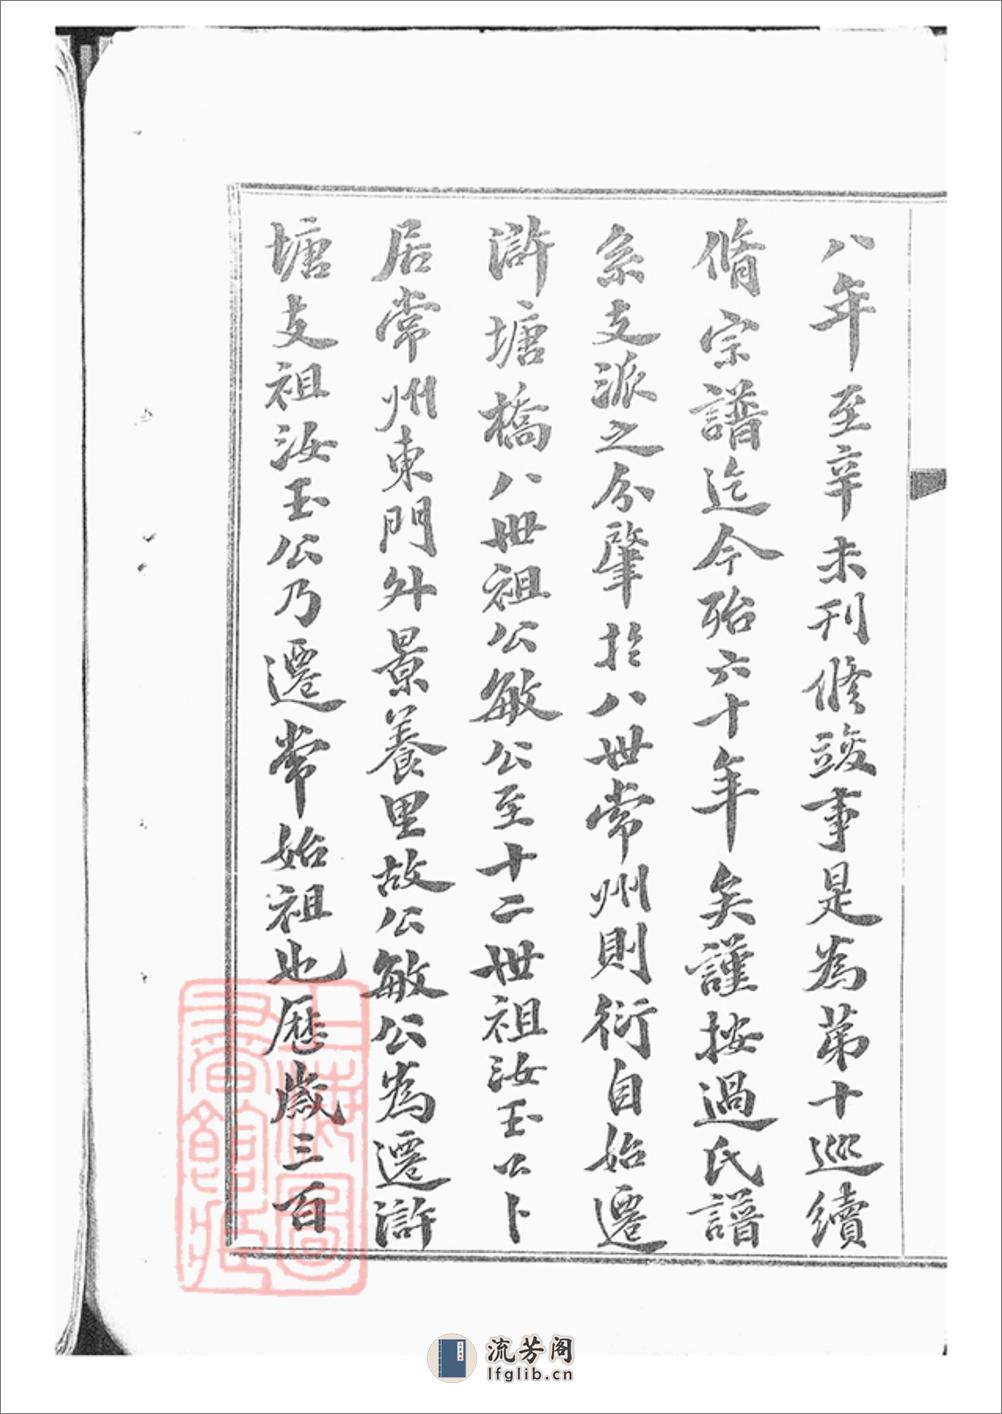 八年至辛未刊修竣事是為第十巡續
脩宗譜迄今殆六十年矣謹按過氏譜
系支派之分肇於八世常州則衍自始遷
滸塘橋八世祖公敏公至十二世祖汝玉公卜
居常州東門外景養里故公敏公為遷滸
塘支祖汝玉公乃遷常始祖也歷歲三百
上海圖書館藏
流芳阁
lfglib.cn